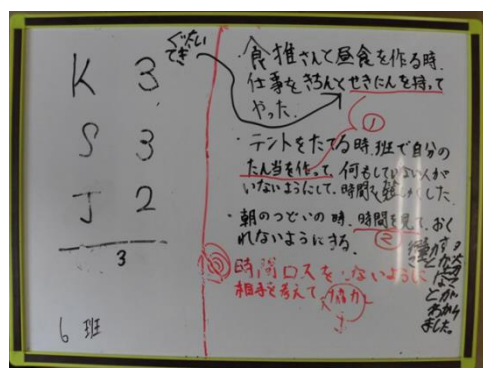 K 3
S 3
J 2
3
6班
ぐたい
てき
・食推さんと昼食を作る時
仕事をきちんとせきにんを持って
やった.
①
・テントをたてる時、班で自分の
たん当を作って、何もしていない人が
いないようにして、時間を短しゅくした
・朝のつどいの時、時間を見て、おく
れないようにする。
②
時間ロスをしないように
相手を考えて協力
わかり
ました。